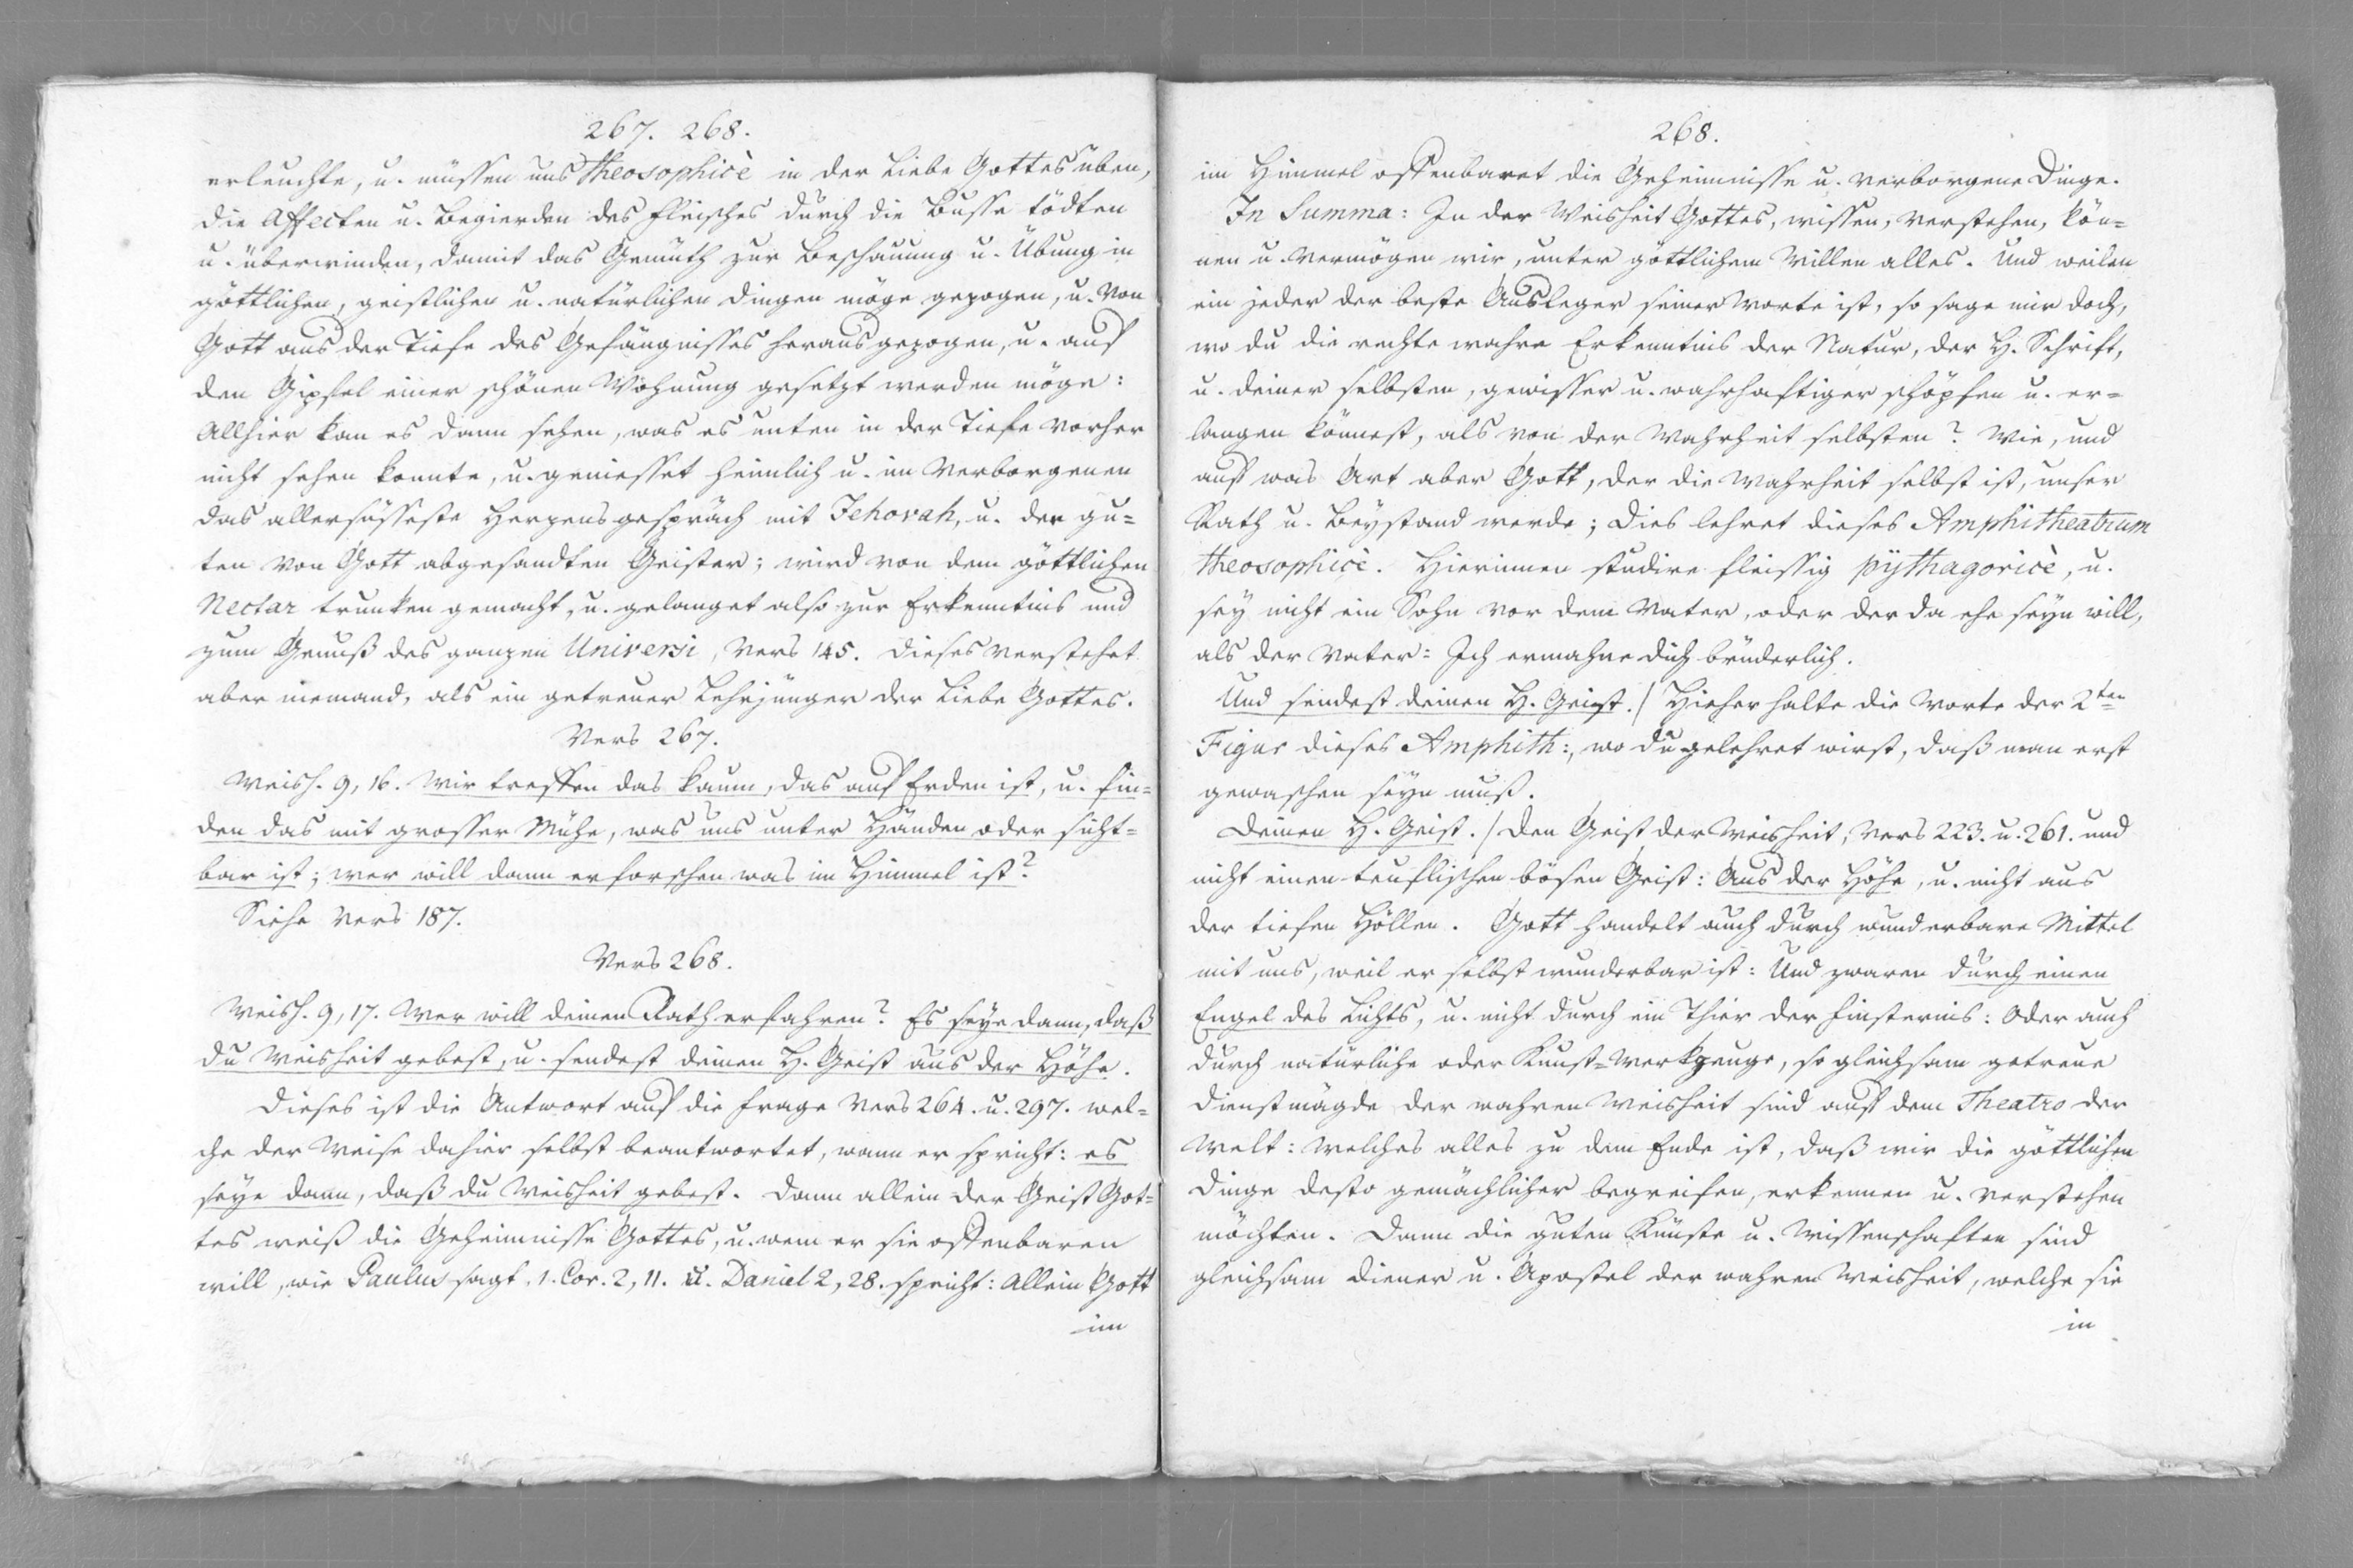 267. 268.
erleuchte, u. müssen uns theosophicè in der Liebe Gottes üben,
die Affecten u. Begierden des Fleisches durch die Busse tödten
u. überwinden, damit das Gemüth zur Beschauung u. Übung in
göttlichen, geistlichen u. natürlichen Dingen möge gezogen, u. von
Gott aus der Tiefe des Gefängnisses herausgezogen, u. auf
den Gipfel einer schönen Wohnung gesetzt werden möge:
Allhier kan es dann sehen, was es unten in der Tiefe vorher
nicht sehen konnte, u. geniesset heimlich u. im Verborgenen
das allersüsseste Herzensgespräch mit Jehovah, u. der gu=
ten von Gott abgesandten Geister; wird von dem göttlichen
Nectar trunken gemacht, u. gelanget also zur Erkenntnis und
zum Genuß des ganzen Universi, Vers 145. Dieses verstehet
aber niemand, als ein getreuer Lehrjünger der Liebe Gottes.
Vers 267.
Weish. 9, 16. Wir treffen das kaum, das auf Erden ist, u. fin=
den das mit grosser Mühe, was uns unter Händen oder sicht=
bar ist; wer will dann erforschen was im Himmel ist?
Siehe Vers 187.
Vers 268.
Weish. 9, 17. Wer will deinen Rath erfahren? Es seye dann, daß
du Weisheit gebest, u. sendest deinen H. Geist aus der Höhe.
Dieses ist die Antwort auf die Frage Vers 264. u. 297. wel=
che der Weise dahier selbst beantwortet, wann er spricht: es
seye dann, daß du Weisheit gebest. Dann allein der Geist Got=
tes weiß die Geheimnisse Gottes, u. wem er sie offenbaren
will, wie Paulus sagt, 1. Cor. 2, 11. u. Daniel 2, 28. spricht: Allein Gott
im
268.
im Himmel offenbaret die Geheimnisse u. verborgene Dinge.
In Summa: In der Weisheit Gottes, wissen, verstehen, kön=
nen u. vermögen wir, unter göttlichem Willen alles. Und weilen
ein jeder der beste Ausleger seiner Worte ist, so sage mir doch,
wo du die rechte wahre Erkenntnis der Natur, der H. Schrift,
u. deiner selbsten, gewisser u. wahrhaftiger schöpfen u. er=
langen könnest, als von der Wahrheit selbsten? Wie, und
auf was Art aber Gott, der die Wahrheit selbst ist, unser
Rath u. Beystand werde; dies lehret dieses Amphitheatrum
theosophicè. Hierinnen studire fleissig pythagoricè, u.
sey nicht ein Sohn vor dem Vater, oder der da ehe seyn will,
als der Vater: Ich ermahne dich brüderlich.
Und sendest deinen H. Geist./ Hieher halte die Worte der 2ten
Figur dieses Amphith:, wo du gelehret wirst, daß man erst
gewaschen seyn muß.
Deinen H. Geist./ Den Geist der Weisheit, Vers 223. u. 261. und
nicht einen teuflischen bösen Geist: Aus der Höhe, u. nicht aus
der tiefen Höllen. Gott handelt auch durch wunderbare Mittel
mit uns, weil er selbst wunderbar ist: Und zwaren durch einen
Engel des Lichts, u. nicht durch ein Thier der Finsternis: Oder auch
durch natürliche oder Kunst=Werkzeuge, so gleichsam getreue
Dienstmägde der wahren Weisheit sind auf dem Theatro der
Welt: Welches alles zu dem Ende ist, daß wir die göttlichen
Dinge desto gemächlicher begreifen, erkennen u. verstehen
möchten. Dann die guten Künste u. Wissenschaften sind
gleichsam Diener u. Apostel der wahren Weisheit, welche sie
in